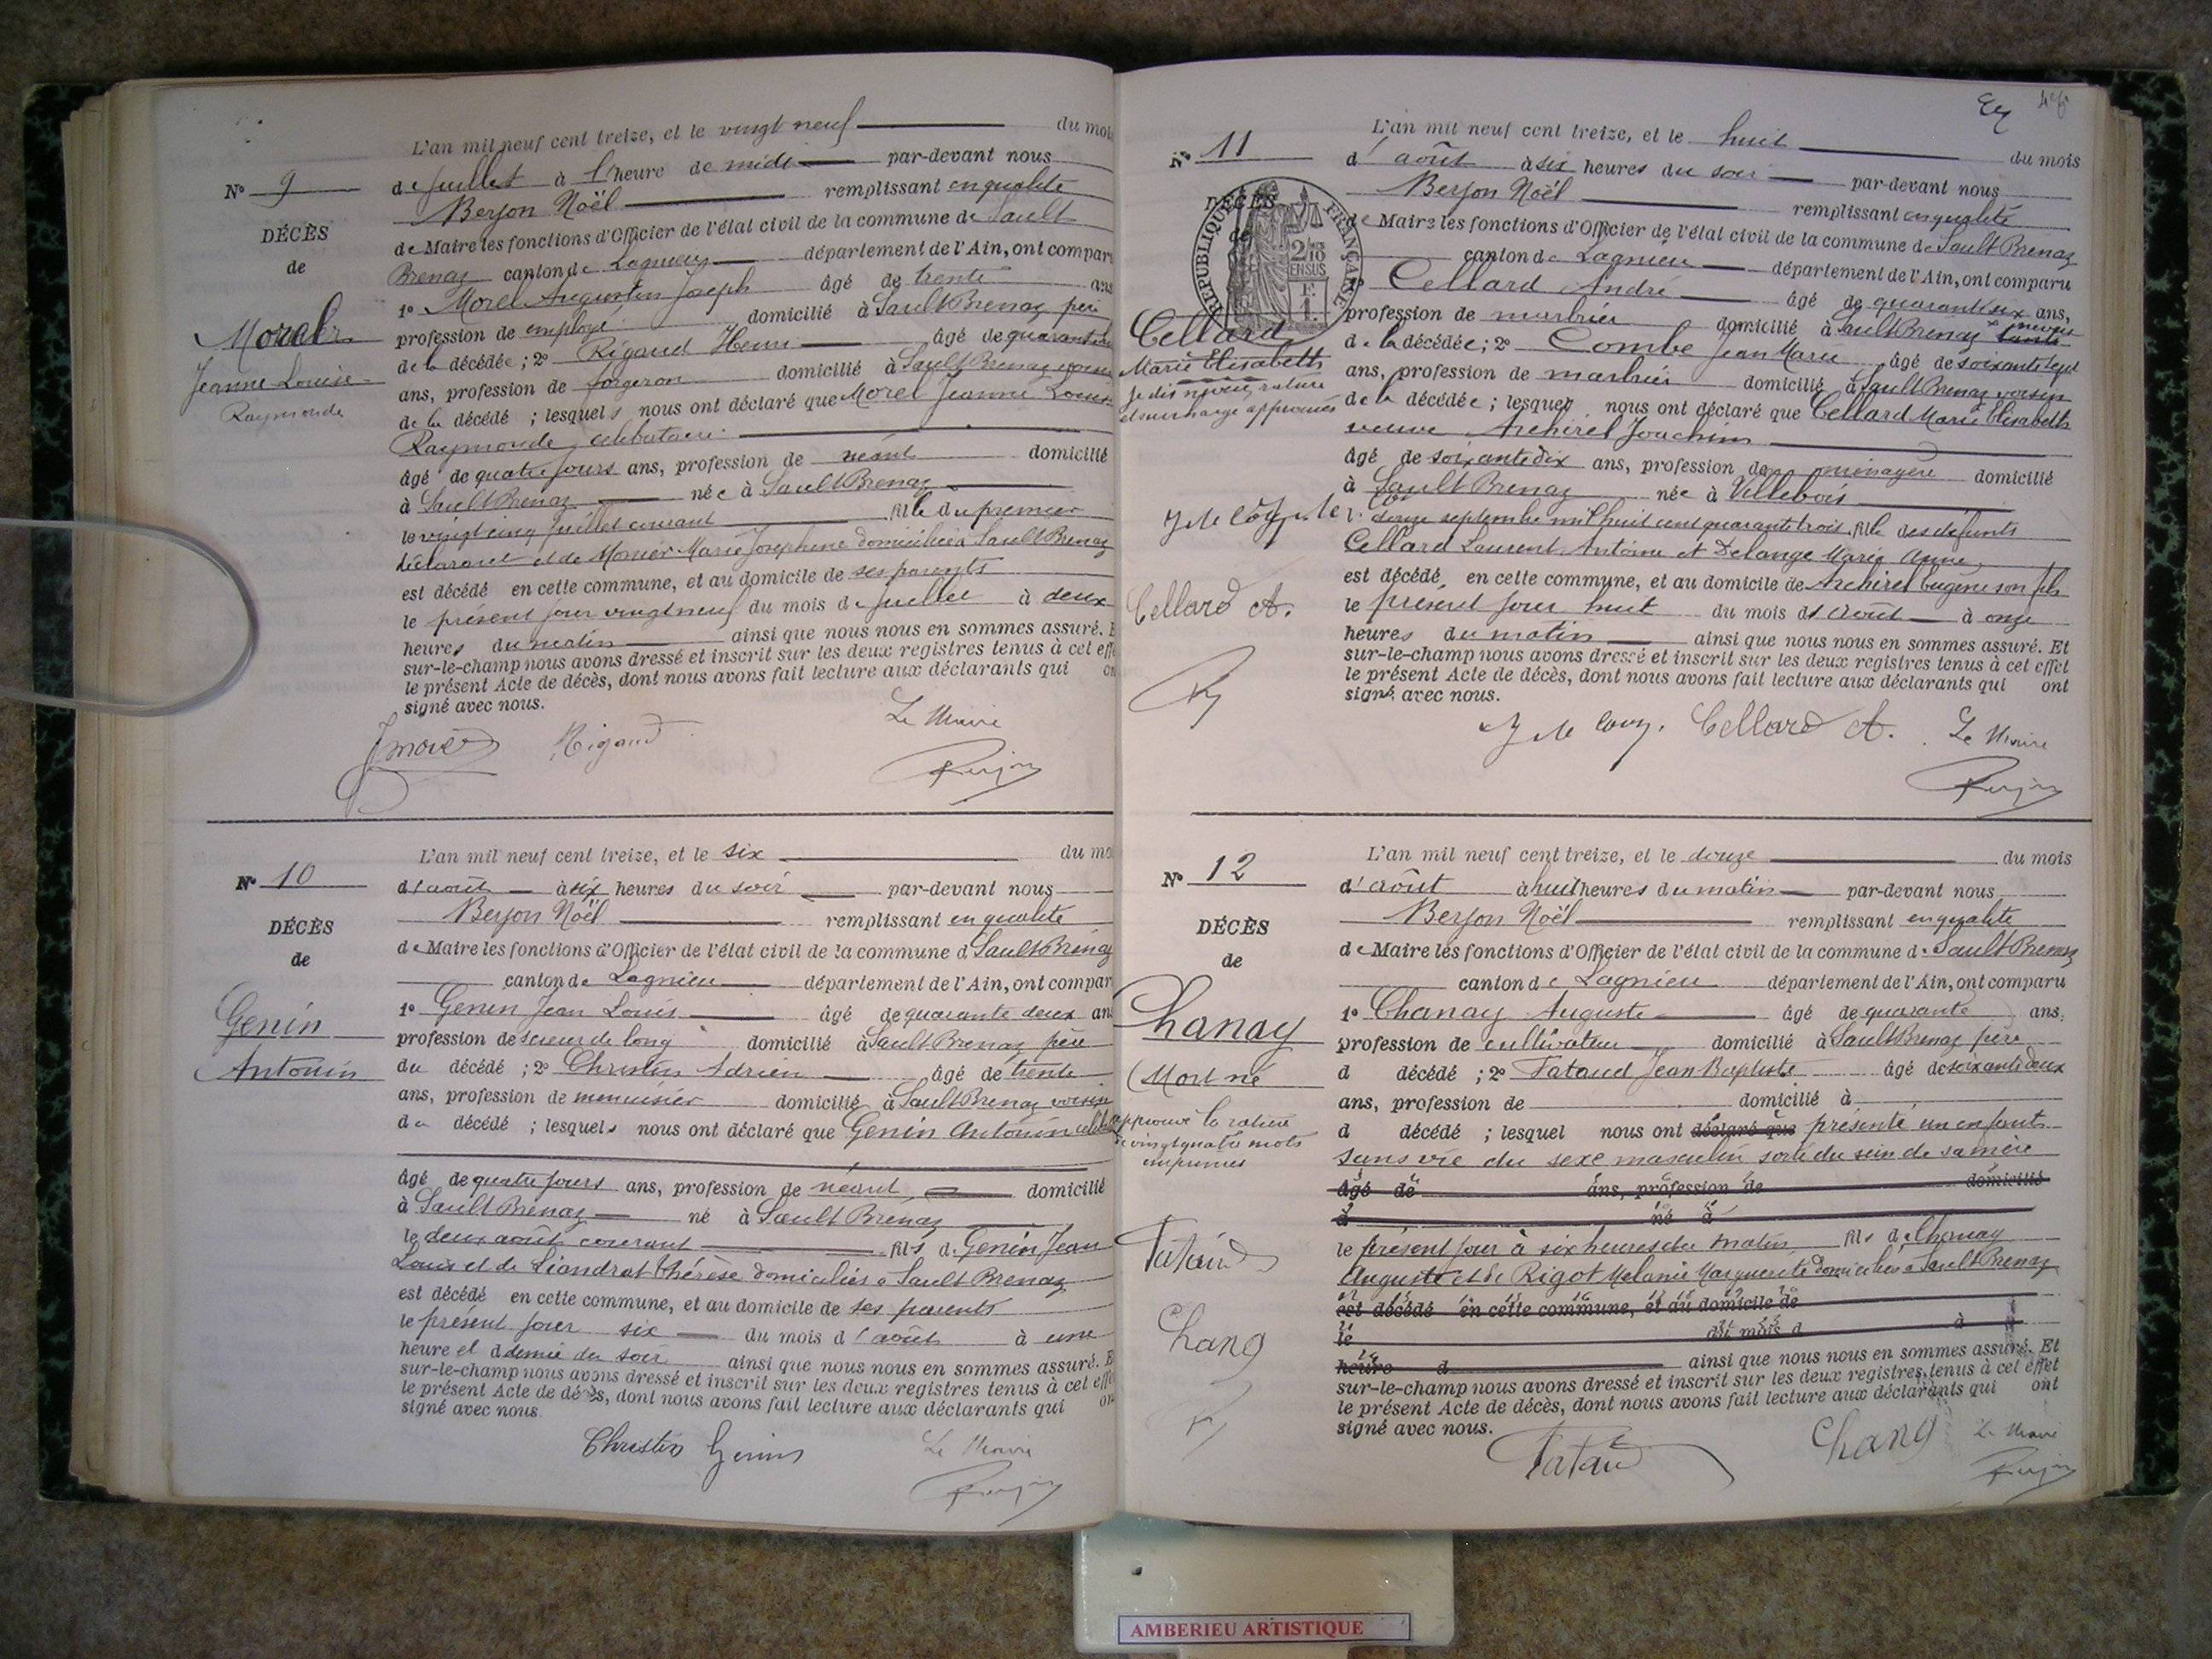 L'an mil neuf cent treize, et le vingt neuf du mois
N° 9
de juillet à l'heure de midi par-devant nous
Berjon Noël remplissant en qualité
DÉCÈS
de Maire les fonctions d'Officier de l'état civil de la commune de Sault
de
Brenaz canton de Lagnieu département de l'Ain, ont compar
1° Morel Augustin Joseph âgé de trente ans
Morel
profession de employé domicilié à Sault Brenaz père
de la décédée ; 2° Rigaud Henri âgé de quarante
Jeanne Louise
ans, profession de forgeron domicilié à Sault Brenaz voisin
Raymonde
de la décédé ; lesquels nous ont déclaré que Morel Jeanne Louise
Raymonde célibataire
âgé de quatre jours ans, profession de néant domicilié
à Sault Brenaz née à Sault Brenaz
le vingt cinq juillet courant fille du premier
déclarant et de Marie Joséphine domiciliés à Sault Brenaz
est décédé en cette commune, et au domicile de ses parents
le présent jour vingt neuf du mois de juillet à deux
heures du matin ainsi que nous nous en sommes assuré. E
sur-le-champ nous avons dressé et inscrit sur les deux registres tenus à cet effe
le présent Acte de décès, dont nous avons fait lecture aux déclarants qui on
signé avec nous.
Rigaud Le Maire
Berjon
L'an mil neuf cent treize, et le six du mo
N° 10
d'août à six heures du soir par-devant nous
Berjon Noël remplissant en qualité
DÉCÈS
de Maire les fonctions d'Officier de l'état civil de la commune d Sault Brenaz
de
canton de Lagnieu département de l'Ain, ont compar
1° Genin Jean Louis âgé de quarante deux an
Genin
profession de scieur de long domicilié à Sault Brenaz père
Antonin
du décédé ; 2° Christin Adrien âgé de trente
ans, profession de menuisier domicilié à Sault Brenaz voisin
du décédé ; lesquels nous ont déclaré que Genin Antonin
âgé de quatre jours ans, profession de néant domicilié
à Sault Brenaz né à Sault Brenaz
le deux août courant fils de Genin Jean
Louis et de Liandrat Thérèse domiciliés à Sault Brenaz
est décédé en cette commune, et au domicile de ses parents
le présent jour six du mois d'août à une
heure et demie du soir ainsi que nous nous en sommes assuré. E
sur-le-champ nous avons dressé et inscrit sur les deux registres tenus à cet effe
le présent Acte de décès, dont nous avons fait lecture aux déclarants qui on
signé avec nous
Christin Genin Le Maire
Berjon
L'an mil neuf cent treize, et le huit du mois
N° 11
d'août à six heures du soir par-devant nous
Berjon Noël remplissant en qualité
DÉCÈS
de
REPUBLIQUE FRANÇAISE
2/10 EN SUS
F. 1
de Maire les fonctions d'Officier de l'état civil de la commune de Sault Brenaz
canton de Lagnieu département de l'Ain, ont comparu
1° Cellard André âgé de quarante six ans,
profession de marbrier domicilié à Sault Brenaz neveu tante
Cellard
de la décédée ; 2° Combe Jean Marie âgé de soixante sept
Marie Elisabeth
ans, profession de marbrier domicilié à Sault Brenaz voisin
Je dis neveu, rature
et surcharge approuvés
de la décédée ; lesquels nous ont déclaré que Cellard Marie Elisabeth
veuve Archirel Joachim
âgé de soixante dix ans, profession de ménagère domicilié
à Sault Brenaz née à Villebois
le douze septembre mil huit cent quarante trois fille des défunts
Cellard Laurent Antoine et Delange Marie Anne
est décédé, en cette commune, et au domicile de Archirel Eugène son fils
Cellard A.
le présent jour huit du mois d'août à onze
heures du matin ainsi que nous nous en sommes assuré. Et
sur-le-champ nous avons dressé et inscrit sur les deux registres tenus à cet effet
le présent Acte de décès, dont nous avons fait lecture aux déclarants qui ont
signé avec nous.
Cellard A. Le Maire
Berjon
L'an mil neuf cent treize, et le douze du mois
N° 12
d'août à huit heures du matin par-devant nous
Berjon Noël remplissant en qualité
DÉCÈS
de Maire les fonctions d'Officier de l'état civil de la commune de Sault Brenaz
de
canton de Lagnieu département de l'Ain, ont comparu
1° Chanay Auguste âgé de quarante ans,
Chanay
profession de cultivateur domicilié à Sault Brenaz père
Mort né
d décédé ; 2° Tataud Jean Baptiste âgé de soixante deux
ans, profession de domicilié à
approuvé la rature
de vingt quatre mots
imprimés
d décédé ; lesquel nous ont déclaré que présenté un enfant
sans vie du sexe masculin sorti du sein de sa mère
âgé de ans, profession de domicilié
à né à
le présent jour à six heures du matin fils de Chanay
Auguste et de Rigot Mélanie Marguerite domiciliés à Sault Brenaz
Tataud
est décédé en cette commune, et au domicile de
le du mois d à
Chanay
heure d ainsi que nous nous en sommes assuré. Et
sur-le-champ nous avons dressé et inscrit sur les deux registres tenus à cet effet
le présent Acte de décès, dont nous avons fait lecture aux déclarants qui ont
signé avec nous.
Tataud Chanay Le Maire
Berjon
AMBERIEU ARTISTIQUE